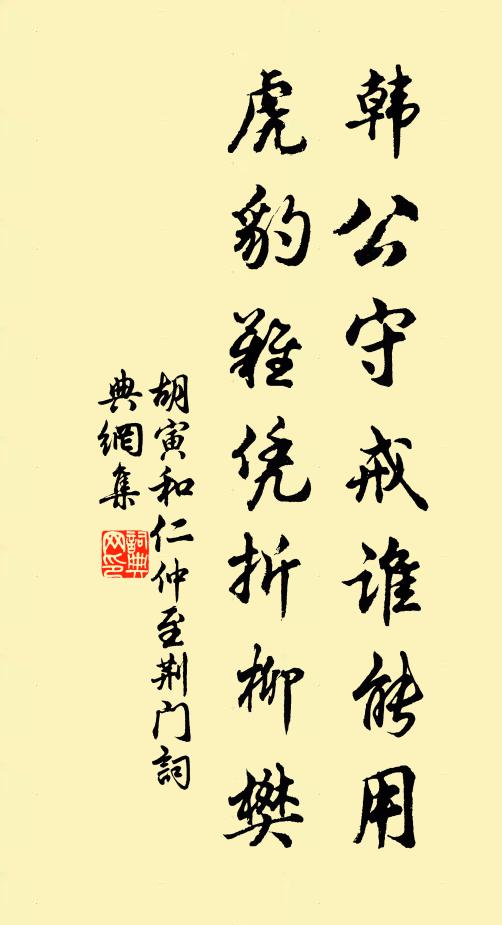 韩公守戒谁能用
虎豹难凭折柳樊
胡寅和仁仲至荆门詞
典網集
詞典
网印